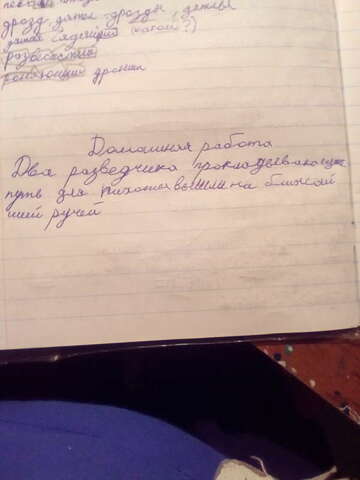 дрозд, дятел, дрозды, дятлы
дятел сидящий (какой?)
развесистый
Домашная работа
Два разведчика прокладывающие
путь для пихоты вышли на ближай
ший ручей